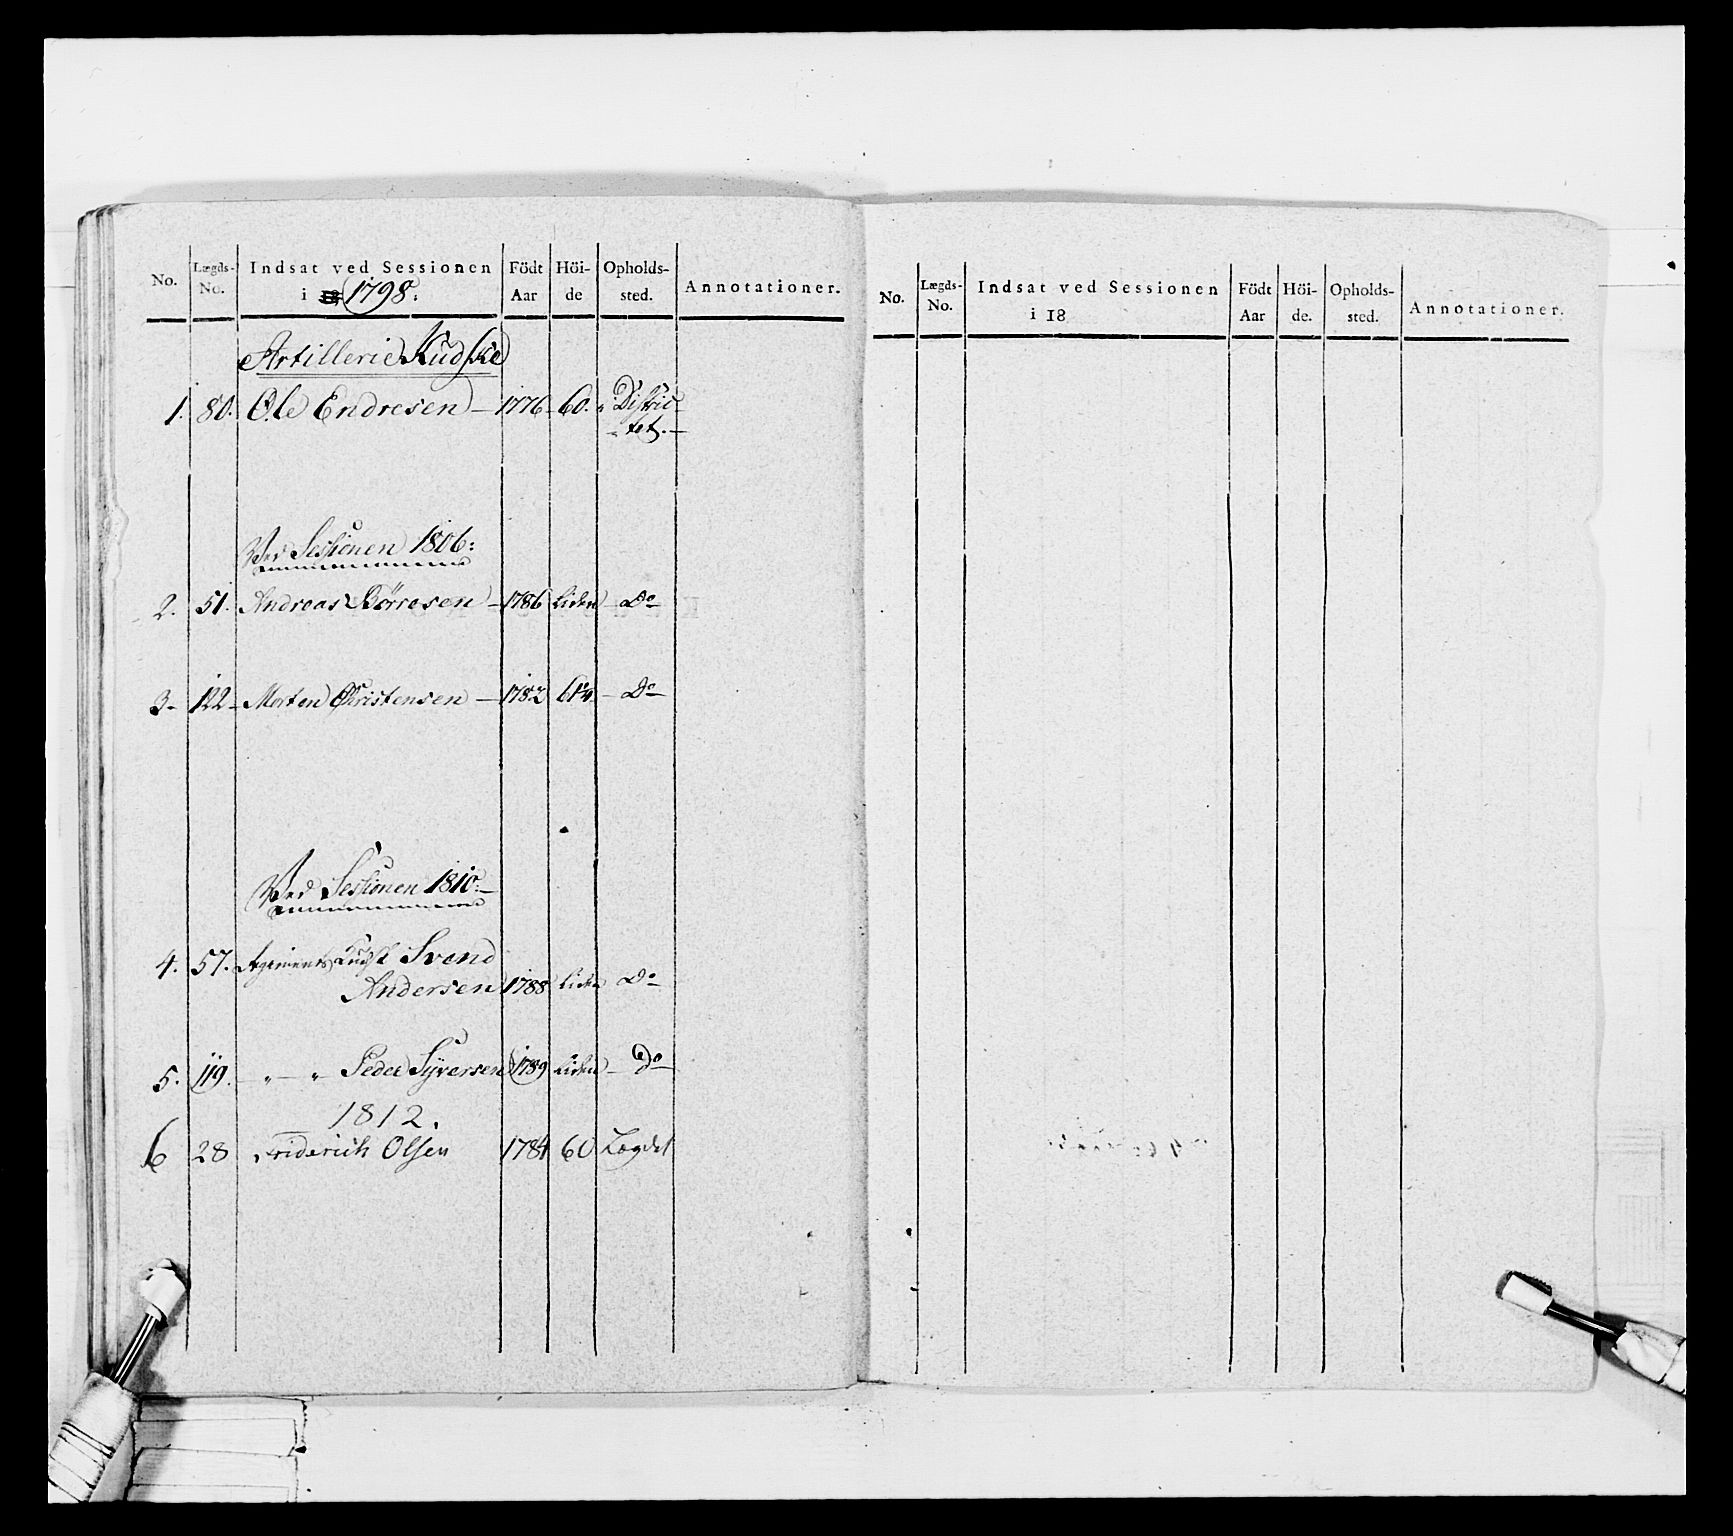 No. Lægds-No. Indsat ved Sessionen i 1798: Födt Aar Höi-de Opholds-sted. Annotationer.
Artillerie Kudske
1. 80. Ole Endresen – 1776 60. Distric-
tet. –
Ved Sessionen 1806:
2. 51. Andreas Børresen – 1786 Liden – Do –
3 – 122 – Morten Christensen – 1782 61¼ – Do –
Ved Sessionen 1810: –
4. 57. Regiments Kudsk Svend
Andersen 1788 Liden Do –
5. 119. – " – " Peder Syversen 1789 Liden – Do –
1812.
6 28 Friderich Olsen 1784 60 Lægdet
No. Lægds-No. Indsat ved Sessionen i 18 Födt Aar Höi-de. Opholds-sted. Annotationer.